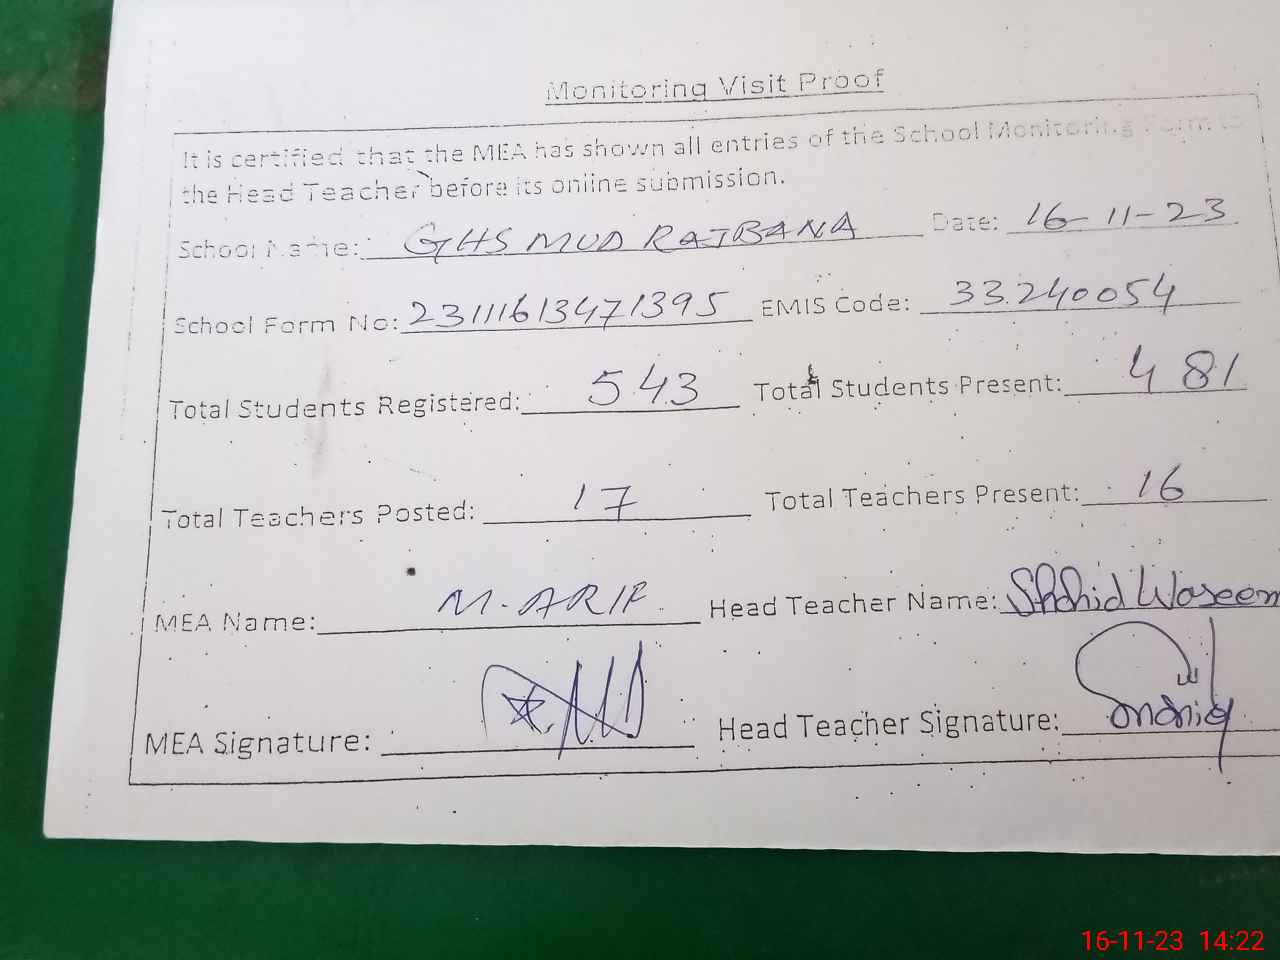 Monitoring Visit Proof
It is certified that the MEA has shown all entries of the School Monitoring Form to
the Head Teacher before its online submission.
School Name: GHS MUD RAJBANA Date: 16-11-23
School Form No: 23111613471395 EMIS Code: 33240054
Total Students Registered: 543 Total Students Present: 481
Total Teachers Posted: 17 Total Teachers Present: 16
MEA Name: M. ARIF Head Teacher Name: Shahid Waseem
MEA Signature: Head Teacher Signature:
16-11-23 14:22